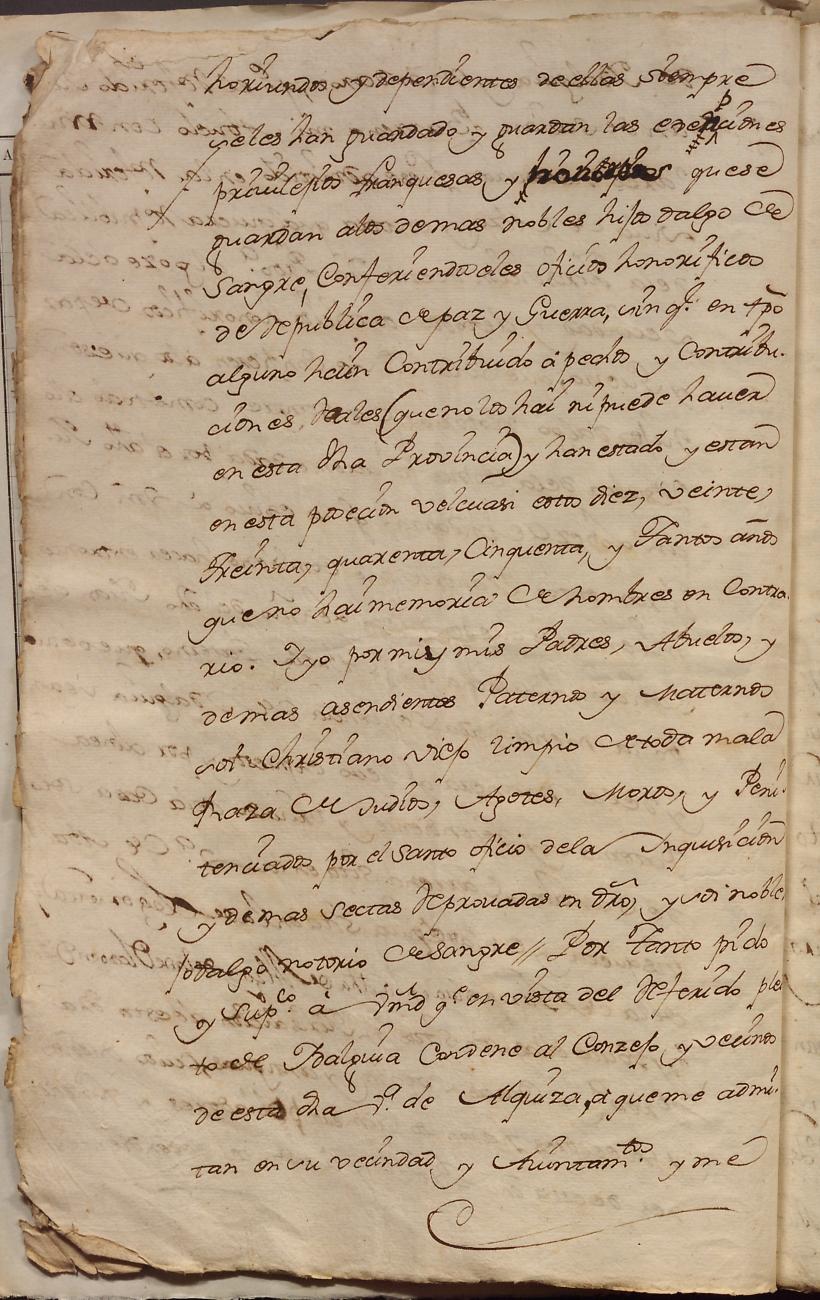 horiundos y dependientes de ellas siempre
se les han guardado y guardan las exempciones
privilejios franquesas y honores que se
guardan a los demas nobles hijos dalgo de
sangre, Confiriendoseles oficios honorificos
de Republica de paz y Guerra, sin q.e en tpo
alguno haian Contribuido a pechos y Contribu-
ciones Reales (que no los hai ni puede haver
en esta dha Provincia) y han estado y estan
en esta poseción vel cuasi estos diez, veinte,
Treinta, quarenta, Cinquenta, y Tantos años
que no hai memoria de hombres en Contra
rio. Y yo por mi y mis Padres, Abuelos, y
demas asendientes Paternos y Maternos
soi Christiano viejo limpio de toda mala
Raza de Judios, Agotes, Moros, y Peni-
tenciados por el Santo oficio de la Inquisición
y demas sectas Reprovadas en dro, y soi noble
jodalgo notorio de sangre // Por Tanto pido
y Sup.co à Vmd q.e en vista del Referido plei
to de Idalguia Condene al Conzejo y vecinos
de esta dha V.a de Alquiza, a que me admi-
tan en su vecindad y Aiuntam.tos y me